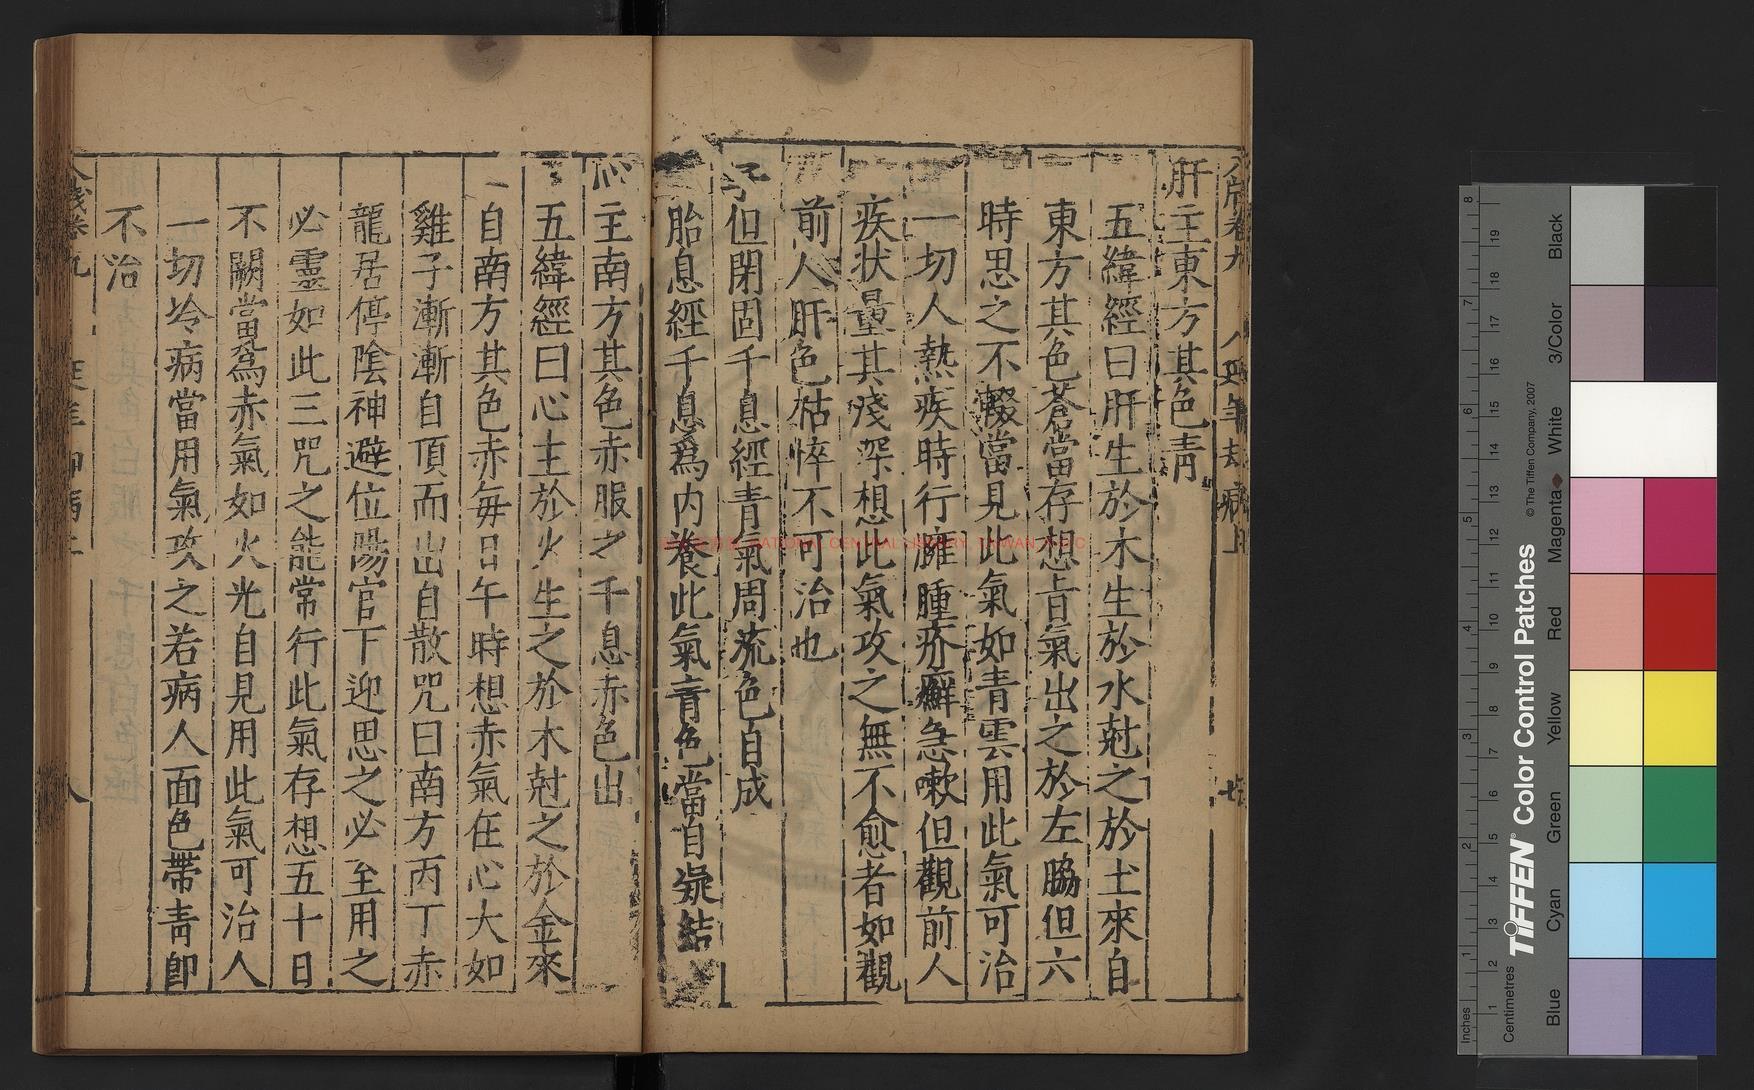 肝主東方其色青
五緯經曰肝生於木生於水尅之於土來自
東方其色蒼當存想青氣出之於左脇但六
時思之不輟當見此氣如青雲用此氣可治
一切人熱疾時行癰腫疥癬急嗽但觀前人
疾状量其淺深想此氣攻之無不愈者如觀
前人肝色枯悴不可治也
但閉固千息經青氣周流色自成
胎息經千息爲内養此氣青色當自凝結
心主南方其色赤服之千息赤色出
五緯經曰心主於火生之於木尅之於金來
自南方其色赤毎日午時想赤氣在心大如
雞子漸漸自頂而出自散咒曰南方丙丁赤
龍居停陰神避位陽官下迎思之必至用之
必靈如此三咒之能常行此氣存想五十日
不闕當見爲赤氣如火光自見用此氣可治人
一切冷病當用氣攻之若病人面色帶青卽
不治
NATIONAL CENTRAL LIBRARY, TAIWAN, R.O.C
Inches
Centimetres
TIFFEN® Color Control Patches
© The Tiffen Company, 2007
Blue
Cyan
Green
Yellow
Red
Magenta
White
3/Color
Black